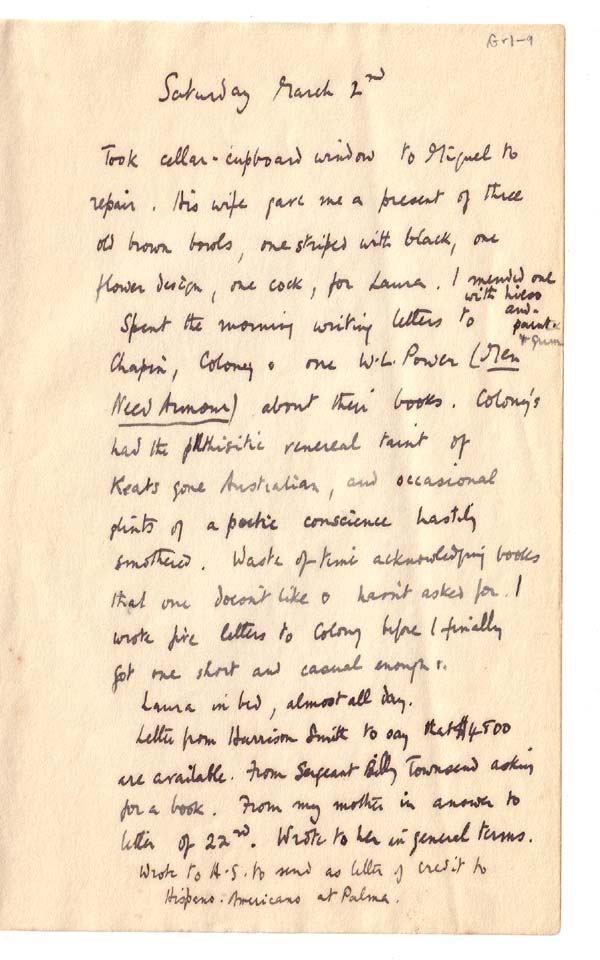 Gr1-9
Saturday March 2nd
Took cellar-cupboard window to Miguel to
repair. His wife gave me a present of three
old brown bowls, one striped with black, one
flower design, one cock, for Laura. I mended one
with hieso
and-
paint
Spent the morning writing letters to
Chapin, Colony & one W.L. Power (Men
Need Armour) about their books. Colony's
had the phthisitic venereal taint of
Keats gone Australian, and occasional
glints of a poetic conscience hastily
smothered. Waste of time acknowledging books
that one doesn't like & hasn't asked for. I
wrote five letters to Colony before I finally
got one short and casual enough.
Laura in bed, almost all day.
Letter from Harrison Smith to say that $4500
are available. From Sergeant Billy Townsend asking
for a book. From my mother in answer to
letter of 22nd. Wrote to her in general terms.
Wrote to H.S. to send as letter of credit to
Hispano-Americano at Palma.